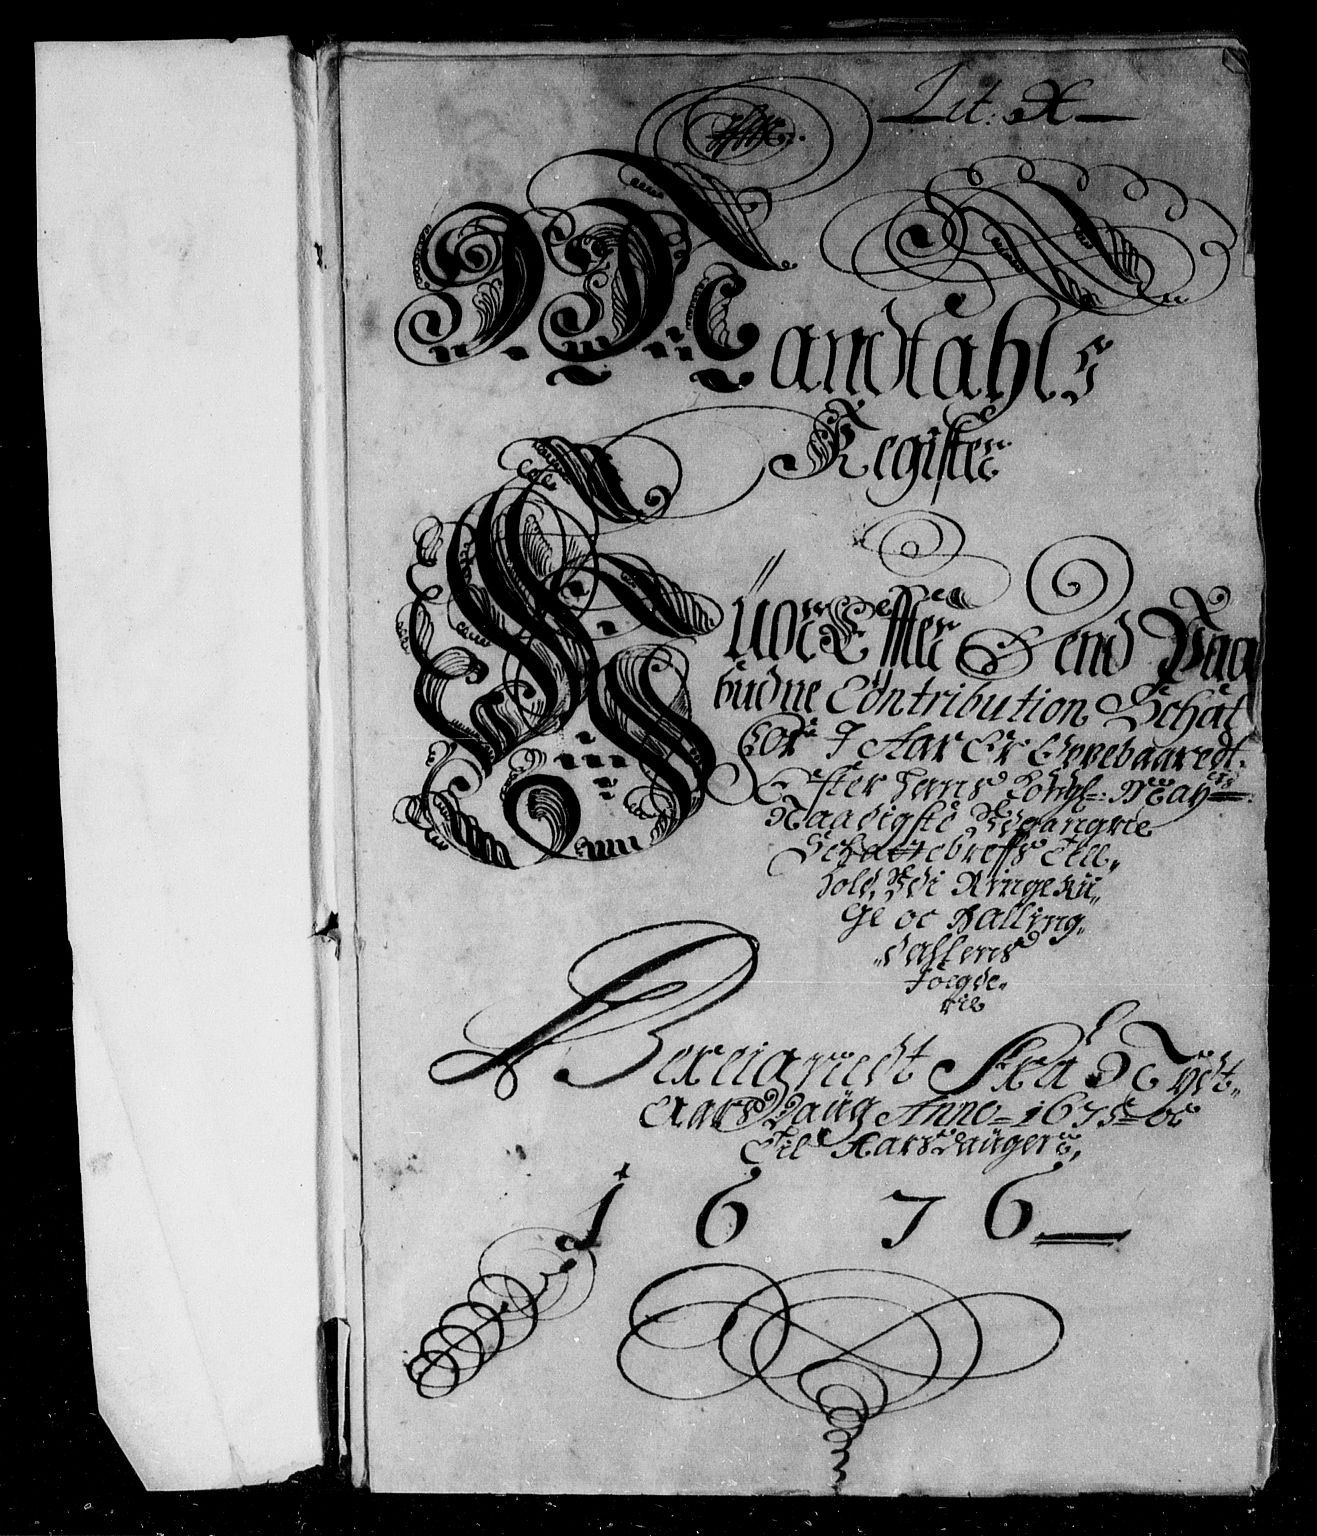 Lit: X
Mandtahls
Register
HuorEffter dend Paa
budne Contribution Schat
For I Aar Er Oppebaaredt
Effter hans Kongl: May:
Naadigste Udgangne
Schattebreffs Till,,
hold, Udi Ringerü,,
ge oc Halling,,
,,dahlens
Foegde,,
rie
Bereignedt Fra Nytt,,
Aars Daug Anno 1675 oc
Til Aarsdaugen,
1676